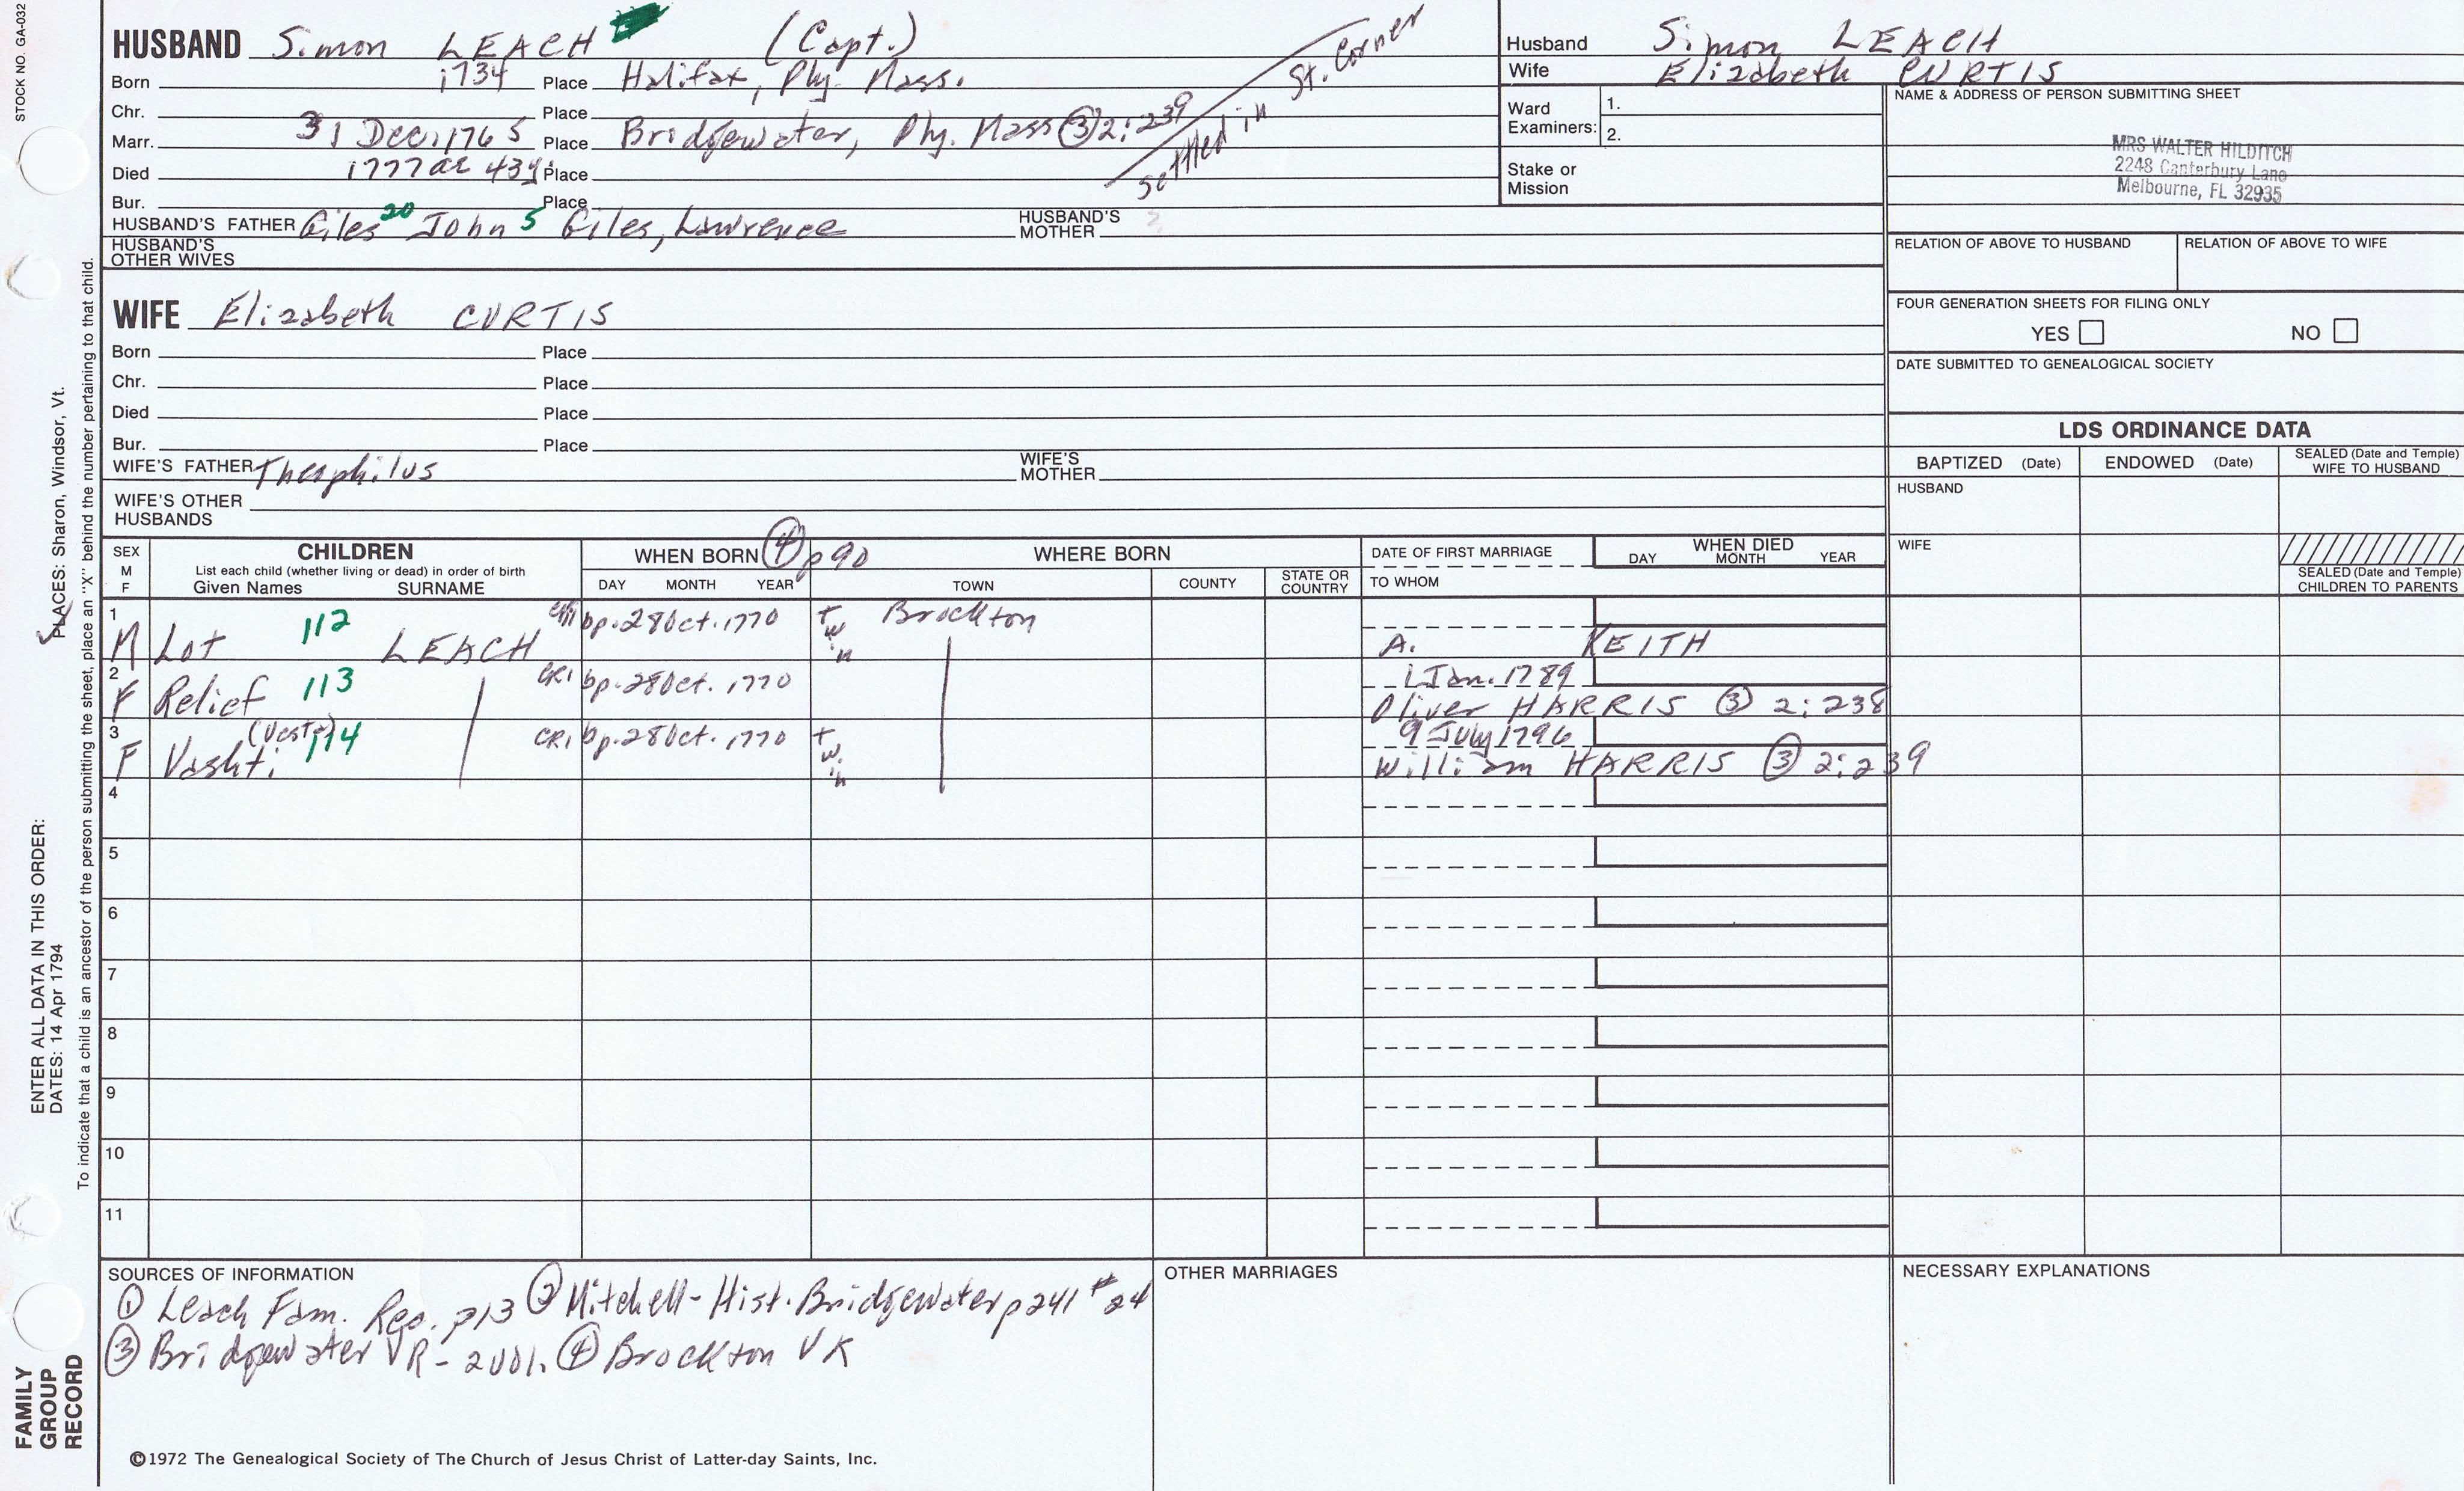 STOCK NO. GA-032
HUSBAND Simon LEACH (Capt.)
Born 1734 Place Halifax, Ply. Mass.
Chr. Place
Marr. 31 Dec. 1765 Place Bridgewater, Ply. Mass ③ 2:239
Died 1777 ae 43y Place
Bur. Place
settled in St. Corner
HUSBAND'S FATHER Giles 20 John 5 Giles, Lawrence HUSBAND'S MOTHER
HUSBAND'S OTHER WIVES
Husband Simon LEACH
Wife Elizabeth CURTIS
Ward Examiners: 1.
2.
Stake or Mission
NAME & ADDRESS OF PERSON SUBMITTING SHEET
MRS WALTER HILDITCH
2248 Canterbury Lane
Melbourne, FL 32935
RELATION OF ABOVE TO HUSBAND RELATION OF ABOVE TO WIFE
FOUR GENERATION SHEETS FOR FILING ONLY
YES NO
DATE SUBMITTED TO GENEALOGICAL SOCIETY
WIFE Elizabeth CURTIS
Born Place
Chr. Place
Died Place
Bur. Place
WIFE'S FATHER Theophilus WIFE'S MOTHER
WIFE'S OTHER HUSBANDS
LDS ORDINANCE DATA
BAPTIZED (Date) ENDOWED (Date) SEALED (Date and Temple) WIFE TO HUSBAND
HUSBAND
WIFE
SEALED (Date and Temple) CHILDREN TO PARENTS
SEX M F CHILDREN
List each child (whether living or dead) in order of birth
Given Names SURNAME
WHEN BORN ④ p 90
DAY MONTH YEAR
WHERE BORN
TOWN COUNTY STATE OR COUNTRY
DATE OF FIRST MARRIAGE
TO WHOM
WHEN DIED
DAY MONTH YEAR
1 M Lot 112 LEACH CR1 bp. 28 Oct. 1770 twin Brockton A. KEITH
2 F Relief 113 CR1 bp. 28 Oct. 1770 1 Jan. 1789
Oliver HARRIS ③ 2:238
3 F Vashti (Vesta) 114 CR1 bp. 28 Oct. 1770 twin 9 July 1796
William HARRIS ③ 2:239
4
5
6
7
8
9
10
11
SOURCES OF INFORMATION
① Leach Fam. Rec. p13 ② Mitchell - Hist. Bridgewater p 241 #24
③ Bridgewater VR - 2 vol. ④ Brockton VR
OTHER MARRIAGES
NECESSARY EXPLANATIONS
©1972 The Genealogical Society of The Church of Jesus Christ of Latter-day Saints, Inc.
FAMILY GROUP RECORD
ENTER ALL DATA IN THIS ORDER:
DATES: 14 Apr 1794
PLACES: Sharon, Windsor, Vt.
To indicate that a child is an ancestor of the person submitting the sheet, place an "X" behind the number pertaining to that child.